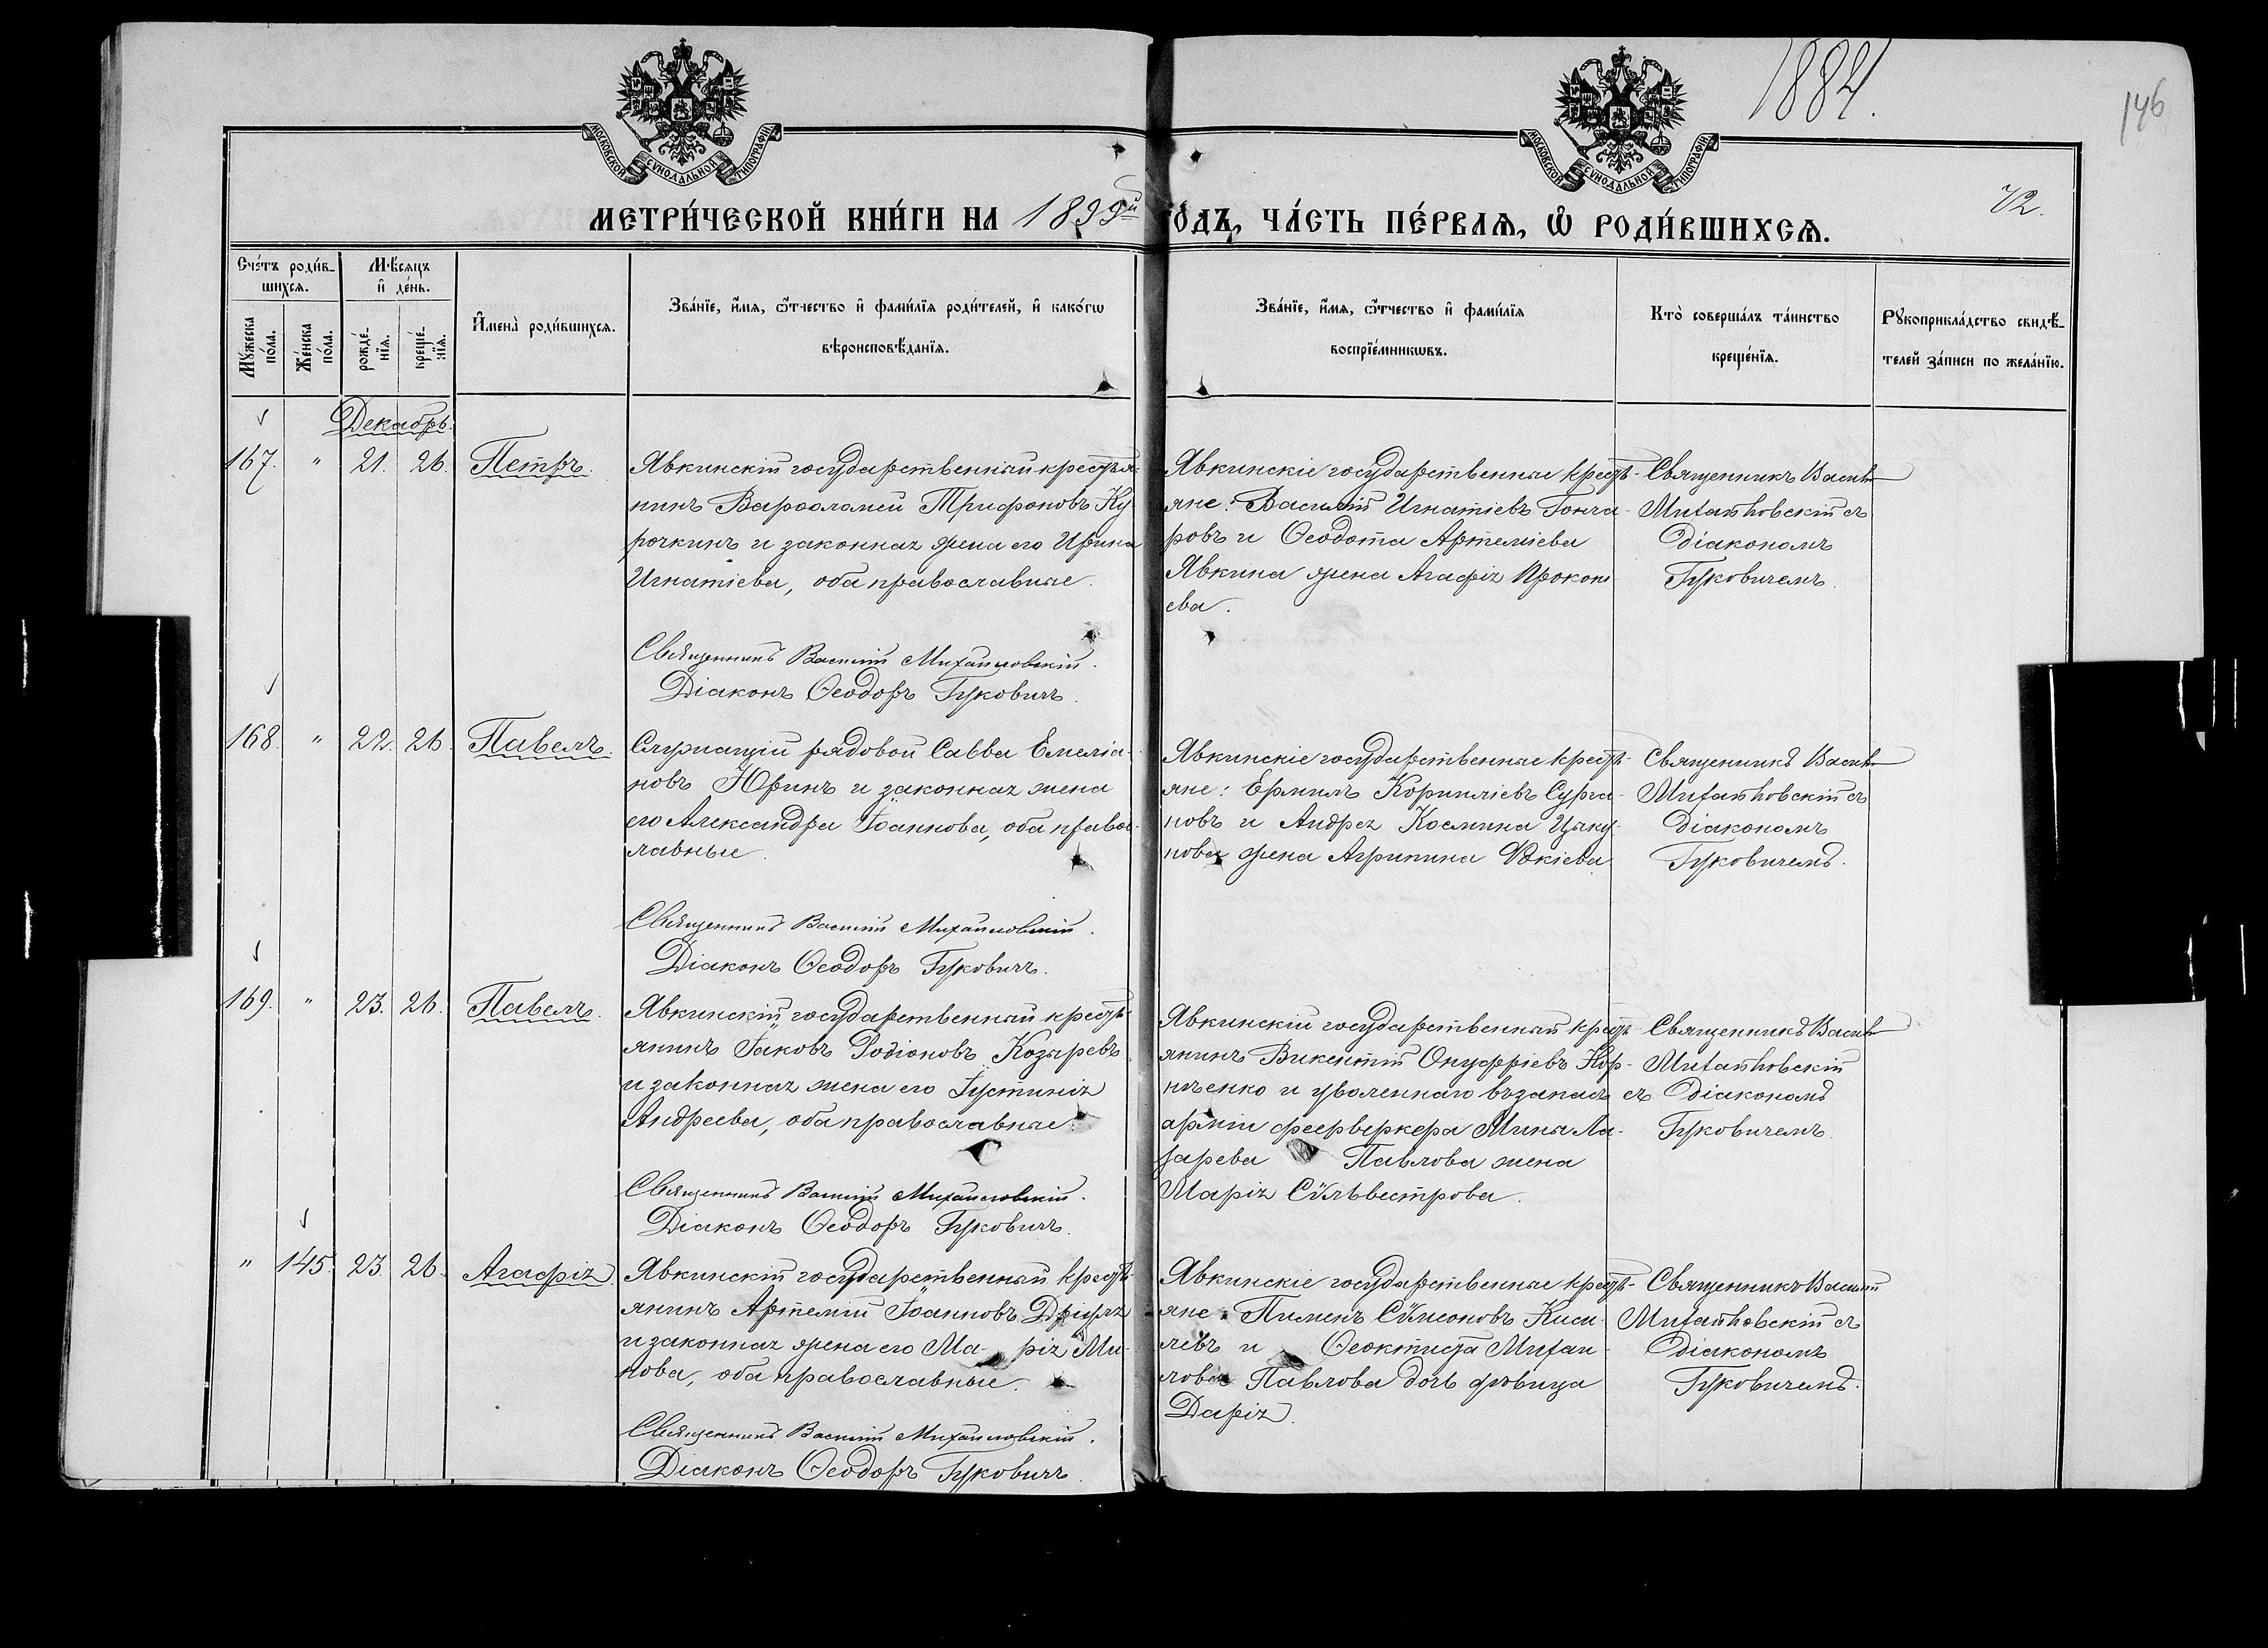 1884.
146
72.
МОСКОВСКОЙ СѴНОДАЛЬНОЙ ТИПОГРАФІИ
МОСКОВСКОЙ СѴНОДАЛЬНОЙ ТИПОГРАФІИ
МЕТРИ́ЧЕСКОЙ КНИ́ГИ НА 1899й ГО́ДЪ, ЧА́СТЬ ПЕ́РВАѦ, Ѡ РОДИ́ВШИХСѦ.
Сче́тъ роди́в-
шихсѧ.
Мѣ́сяцъ
и҆ де́нь.
Мꙋ́жеска по́ла.
Же́нска по́ла.
рожде́-нїѧ.
креще́-нїѧ.
И҆мена̀ роди́вшихсѧ.
Зва́нїе, и҆́мѧ, ѻ҆́тчество и҆ фами́лїѧ роди́телей, и҆ како́гѡ
вѣроисповѣ́данїѧ.
Зва́нїе, и҆́мѧ, ѻ҆́тчество и҆ фами́лїѧ
воспрїе́мникѡвъ.
Кто̀ соверша́лъ та́инство
креще́нїѧ.
Рꙋкоприкла́дство свидѣ́-
телей за́писи по жела́нїю.
Декабрь.
167. " 21. 26. Петръ.
Явкинскій государственный крестья-
нинъ Варѳоломей Трифоновъ Ку-
рочкинъ и законная жена его Ирина
Игнатіева, оба православные.
Священникъ Василій Михайловскій.
Діаконъ Ѳеодоръ Гуковичъ.
Явкинскіе государственные кресть-
яне: Василій Игнатіевъ Гонча-
ровъ и Ѳеодота Артеміева
Явкина жена Агафія Прокопі
ева.
Священникъ Василій
Михайловскій съ
діакономъ
Гуковичемъ.
168. " 22. 26. Павелъ.
Служащій рядовой Савва Емеліа-
новъ Юринъ и законная жена
его Александра Іоаннова, оба правос-
лавные.
Священникъ Василій Михайловскій.
Діаконъ Ѳеодоръ Гуковичъ.
Явкинскіе государственные кресть-
яне: Ермилъ Корниліевъ Сурга-
новъ и Андрея Космина Цыку-
нова жена Агрипина
Священникъ Василій
Михайловскій съ
діакономъ
Гуковичемъ.
169. " 23. 26. Павелъ.
Явкинскій государственный кресть-
янинъ Іаковъ Родіоновъ Козыревъ
и законная жена его Іустинія
Андреева, оба православные.
Священникъ Василій Михайловскій.
Діаконъ Ѳеодоръ Гуковичъ.
Явкинскій государственный кресть-
янинъ Викентій Онуфріевъ Кор-
нѣенко и уволеннаго въ запасъ
арміи феерверкера Мины Ла-
зарева Павлова жена
Марія Сѵльвестрова.
Священникъ Василій
Михайловскій
съ діакономъ
Гуковичемъ.
" 145. 23. 26. Агафія.
Явкинскій государственный кресть-
янинъ Артемій Іоанновъ
и законная жена его Марія Ми-
нова, оба православные.
Священникъ Василій Михайловскій.
Діаконъ Ѳеодоръ Гуковичъ.
Явкинскіе государственные кресть-
яне: Пименъ Сѵмеоновъ Кисе-
левъ и Ѳеоктиста Михаи-
лова Павлова дочь дѣвица
Дарія.
Священникъ Василій
Михайловскій съ
діакономъ
Гуковичемъ.